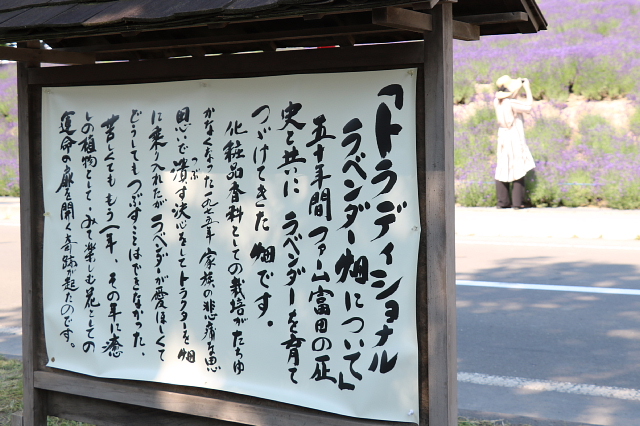 「トラディショナル
ラベンダー畑について」
五十年間ファーム富田の歴
史と共にラベンダーを育て
つづけてきた畑です。
化粧品香料としての栽培がたちゆ
かなくなった一九七五年、家族の悲痛な思
思いで潰す決心をしてトラクターを畑
つぶ
に乗り入れたがラベンダーが愛ほしくて
どうしてもつぶすことはできなかった、
苦しくてももう一年、その年に癒
しの植物として、みて楽しむ花としての
運命の扉を開く奇跡が起たのです。